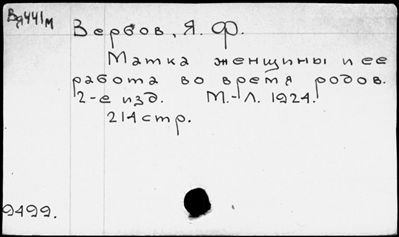 Вя441м
Вербов, Я. Ф.
Матка женщины и ее
работа во время родов.
2-е изд. М.-Л. 1924.
214 стр.
9499.